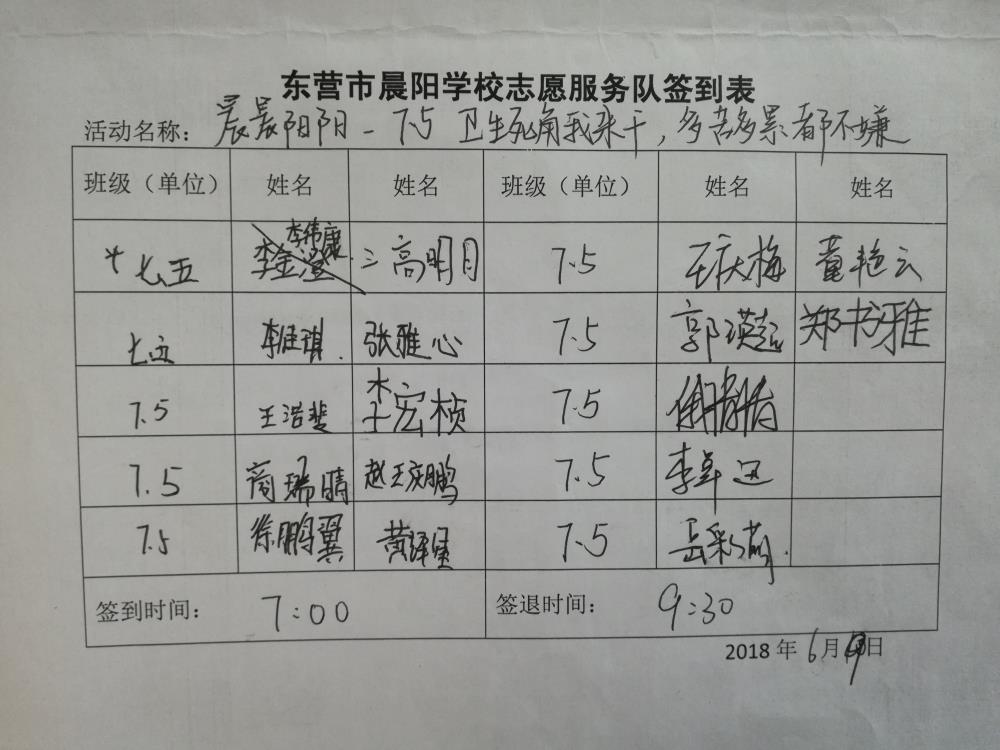 东营市晨阳学校志愿服务队签到表
活动名称: 晨晨阳阳-7.5 卫生死角我来干,多苦多累都不嫌
班级(单位) 姓名 姓名 班级(单位) 姓名 姓名
七五 李伟康 高明月 7.5 王庆梅 董艳云
李金澄
七五 李佳琪 张雅心 7.5 郭瑛超 郑书雅
7.5 王浩斐 李宏桢 7.5
7.5 商瑞晴 赵王庆鹏 7.5 李卓迅
7.5 徐鹏翼 黄泽堡 7.5 岳彩萌
签到时间: 7:00 签退时间: 9:30
2018年6月 日